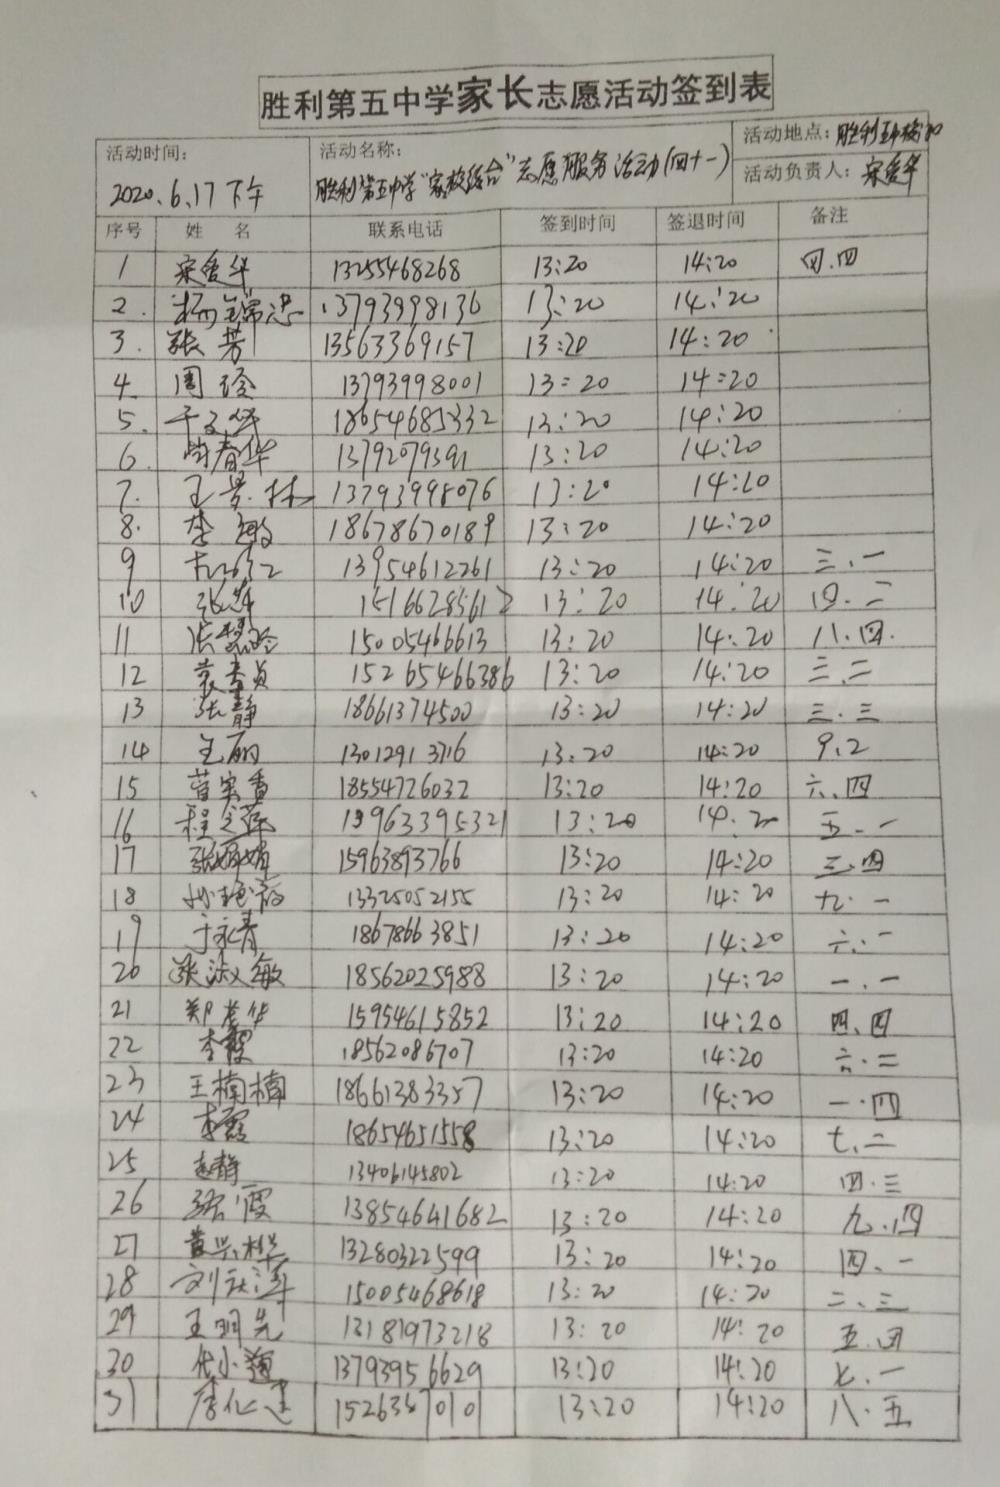 胜利第五中学家长志愿活动签到表
活动时间: 2020.6.17下午
活动名称: 胜利第五中学"家校结合"志愿服务活动(四十一)
活动地点: 胜利五中校
活动负责人: 宋爱华
序号 姓名 联系电话 签到时间 签退时间 备注
1 宋爱华 13255468268 13:20 14:20 四.四
2. 杨锦忠 13793998136 13:20 14:20
3. 张芳 13563369157 13:20 14:20
4 周玲 13793998001 13:20 14:20
5. 于文华 18654685332 13:20 14:20
6. 尚春华 13792079391 13:20 14:20
7. 王景林 13793998076 13:20 14:20
8. 李敏 18678670189 13:20 14:20
9 13954612261 13:20 14:20 三.一
10 张萍 15166285612 13:20 14:20 四.二
11 15005466613 13:20 14:20 八.四.
12 袁春贞 15265466386 13:20 14:20 三.二
13 张静 18661374500 13:20 14:20 三.三
14 王丽 13012913716 13:20 14:20 9.2
15 18554726032 13:20 14:20 六.四
16 13963395321 13:20 14:20 五.一
17 张娟娟 15963893766 13:20 14:20 三.四
18 13325052155 13:20 14:20 九.一
19 于永青 18678663851 13:20 14:20 六.二
20 张淑敏 18562025988 13:20 14:20 一.一
21 15954615852 13:20 14:20 四.四
22 李霞 18562086707 13:20 14:20 六.二
23 王楠楠 18661383357 13:20 14:20 一.四
24 李霞 18654651558 13:20 14:20 七.二
25 赵静 13406145802 13:20 14:20 四.三
26 张霞 13854641682 13:20 14:20 九.四
27 黄兴 13280322599 13:20 14:20 四.一
28 15005468618 13:20 14:20 二.三
29 王明先 13181973218 13:20 14:20 五.四
30 代小 13793956629 13:20 14:20 七.一
31 13:20 14:20 八.五